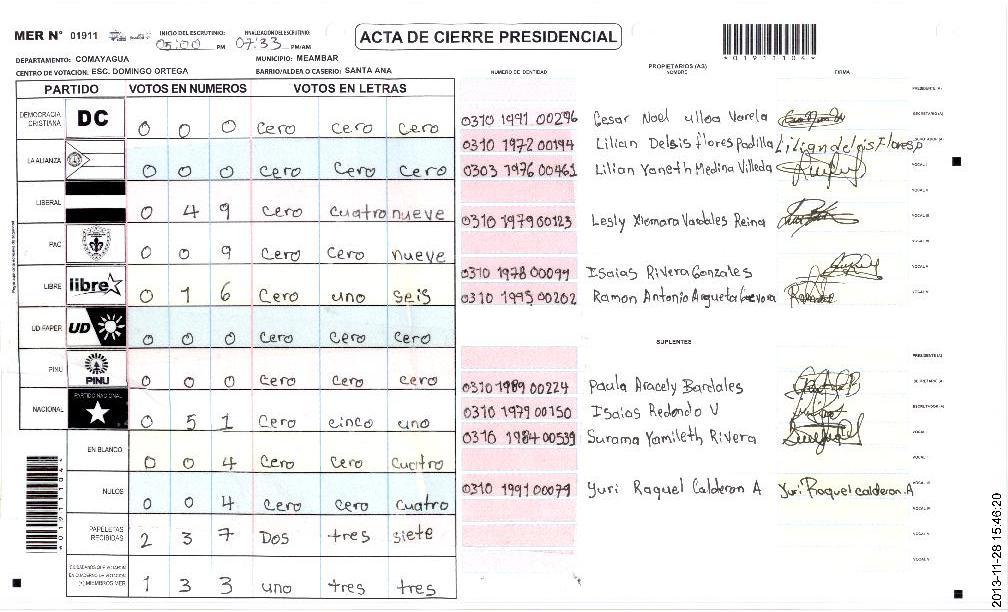 MER N° 01911 INICIO DEL ESCRUTINIO: 05:00 PM FINALIZACION DEL ESCRUTINIO: 07:33 PM/AM
ACTA DE CIERRE PRESIDENCIAL
*01911104*
DEPARTAMENTO: COMAYAGUA MUNICIPIO: MEAMBAR
CENTRO DE VOTACION: ESC. DOMINGO ORTEGA BARRIO/ALDEA O CASERIO: SANTA ANA
PARTIDO VOTOS EN NUMEROS VOTOS EN LETRAS
DEMOCRACIA CRISTIANA DC 0 0 0 Cero Cero Cero
LA ALIANZA 0 0 0 Cero Cero Cero
LIBERAL 0 4 9 Cero cuatro nueve
PAC 0 0 9 Cero Cero nueve
LIBRE libre 0 1 6 Cero uno seis
UD-FAPER UD 0 0 0 Cero Cero Cero
PINU PINU 0 0 0 Cero Cero Cero
NACIONAL PARTIDO NACIONAL 0 5 1 Cero cinco uno
EN BLANCO 0 0 4 Cero Cero Cuatro
NULOS 0 0 4 Cero Cero Cuatro
PAPELETAS RECIBIDAS 2 3 7 Dos tres siete
CIUDADANOS QUE VOTARON EN CUADERNO DE VOTACION (+) MIEMBROS MER 1 3 3 uno tres tres
*01911104*
PROPIETARIOS (AS)
NUMERO DE IDENTIDAD NOMBRE FIRMA
PRESIDENTE (A)
0310 1991 00296 Cesar Noel ulloa Varela SECRETARIO (A)
0310 1972 00194 Lilian Delgis flores Padilla Liliandelgis Flores p ESCRUTADOR (A)
0303 1976 00461 Lilian Yaneth Medina Villeda VOCAL I
VOCAL II
0310 1979 00123 Lesly Xiomara Vardales Reina VOCAL III
VOCAL IV
0310 1978 00099 Isaias Rivera Gonzales VOCAL V
0310 1995 00202 Ramon Antonio Argueta VOCAL VI
SUPLENTES
PRESIDENTE (A)
0310 1989 00224 Paula Aracely Bardales SECRETARIO (A)
0310 1979 00150 Isaias Redondo V ESCRUTADOR (A)
0316 1984 00539 Surama Yamileth Rivera VOCAL I
VOCAL II
0310 1991 00079 Yuri Raquel Calderon A Yuri Raquel calderon.A VOCAL III
VOCAL IV
VOCAL V
VOCAL VI
2013-11-28 15:46:20